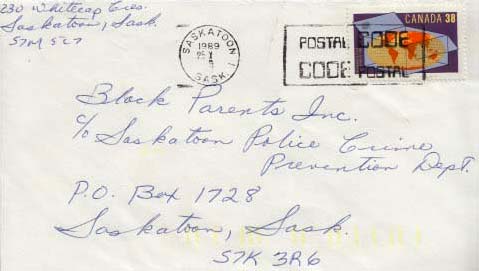 230 Whitecap Cres.
Saskatoon, Sask.
S7M 5C7
SASKATOON 1
1989
SASK.
POSTAL CODE
CODE POSTAL
CANADA 38
Block Parents Inc.
c/o Saskatoon Police Crime
Prevention Dept.
P.O. Box 1728
Saskatoon, Sask.
S7K 3R6